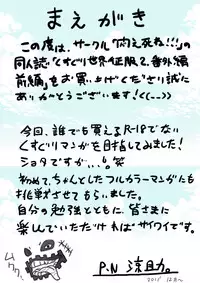 まえがき
この度は、サークル「悶え死ね!!!」の
同人誌「くすぐり世界征服で、番外編
前編」をお買い上げくださり誠に
ありがとうございます!<(_ _)>
今回、誰でも買えるR-18でない
くすぐりマンガを目指してみました!
ショタですが…。笑
初めて、ちゃんとしたフルカラーマンガにも
挑戦させてもらいました。
自分の勉強とともに、皆さまに
楽しんでいただければサイワイです。
P.N 涼助。